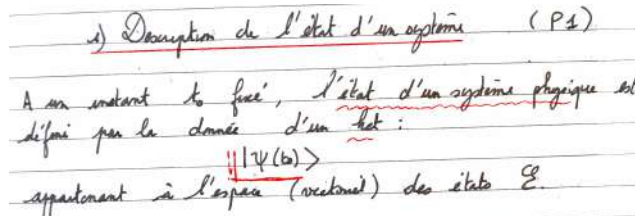 1) Description de l'état d'un système (P1)
A un instant t₀ fixé, l'état d'un système physique est
défini par la donnée d'un ket :
|ψ(t₀)>
appartenant à l'espace (vectoriel) des états ℰ.